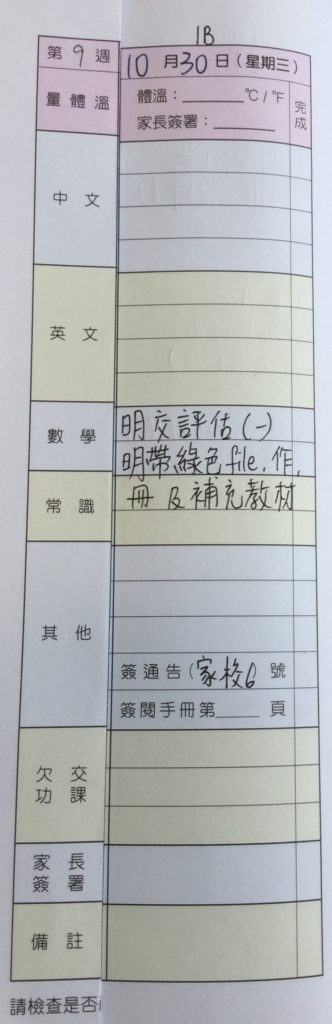 1B
第 9 週
10 月 30 日（星期三）
量體溫
體溫：______°C / °F
家長簽署：______
完成
中 文
英 文
數 學
明交評估(一)
明帶綠色file, 作,
常 識
冊及補充教材
其 他
簽通告（家校6 號
簽閱手冊第____頁
欠 交
功 課
家 長
簽 署
備 註
請檢查是否